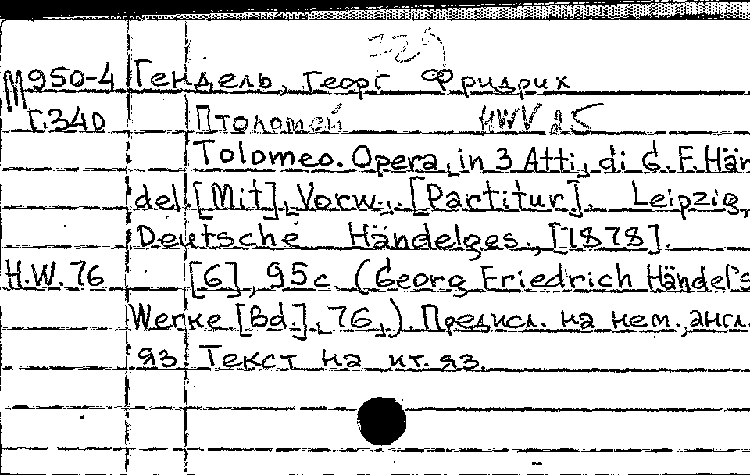 329
М950-4 Гендель, Георг Фридрих
Г.340 Птоломей HWV 25
Tolomeo. Opera in 3 Atti di G.F.Hän
del. [Mit] Vorw.. [Partitur]. Leipzig,
Deutsche Händelges., [1878].
H.W.76 [6], 95с. (Georg Friedrich Händel's
Werke [Bd.], 76,). Предисл. на нем., англ.
яз. Текст на ит. яз.